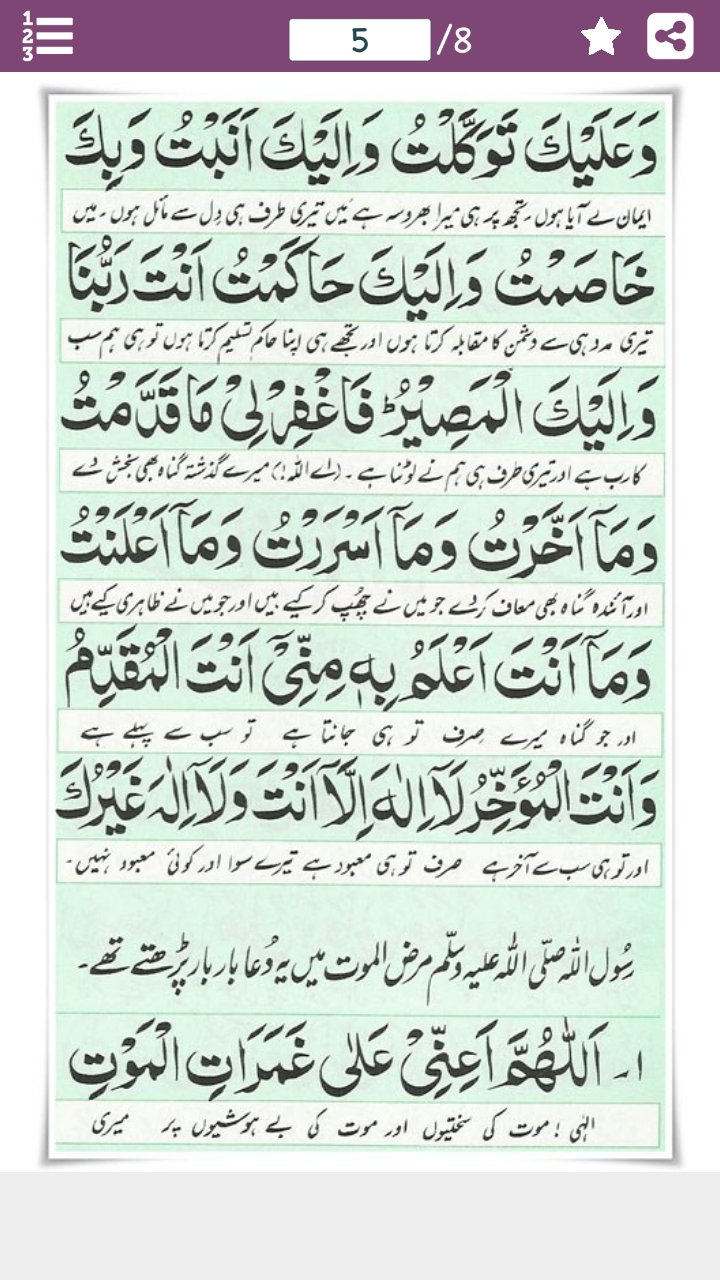 1
2
3
5 /8
وَعَلَيْكَ تَوَكَّلْتُ وَاِلَيْكَ اَنَبْتُ وَبِكَ
ایمان لے آیا ہوں۔ تجھ پر ہی میرا بھروسہ ہے میں تیری طرف ہی دل سے مائل ہوں۔ میں
خَاصَمْتُ وَاِلَيْكَ حَاكَمْتُ اَنْتَ رَبُّنَا
تیری مدد ہی سے دشمن کا مقابلہ کرتا ہوں اور تجھے ہی اپنا حاکم تسلیم کرتا ہوں تو ہی ہم سب
وَاِلَيْكَ الْمَصِيْرُ ط فَاغْفِرْلِىْ مَا قَدَّمْتُ
کا رب ہے اور تیری طرف ہی ہم نے لوٹنا ہے ۔ (اے اللہ!) میرے گذشتہ گناہ بھی بخش دے
وَمَآ اَخَّرْتُ وَمَآ اَسْرَرْتُ وَمَآ اَعْلَنْتُ
اور آئندہ گناہ بھی معاف کر دے جو میں نے چھپ کر کیے ہیں اور جو میں نے ظاہری کیے ہیں
وَمَآ اَنْتَ اَعْلَمُ بِهٖ مِنِّىْٓ اَنْتَ الْمُقَدِّمُ
اور جو گناہ میرے صِرف تو ہی جانتا ہے تو سب سے پہلے ہے
وَاَنْتَ الْمُؤَخِّرُ لَآ اِلٰهَ اِلَّآ اَنْتَ وَلَآ اِلٰهَ غَيْرُكَ
اور تو ہی سب سے آخر ہے صرف تو ہی معبود ہے تیرے سوا اور کوئی معبود نہیں۔
رسُول اللہ صلّی اللہ علیہ وسلّم مرض الموت میں یہ دُعا بار بار پڑھتے تھے۔
۱۔ اَللّٰهُمَّ اَعِنِّىْ عَلٰى غَمَرَاتِ الْمَوْتِ
الٰہی ! موت کی سختیوں اور موت کی بے ہوشیوں پر میری